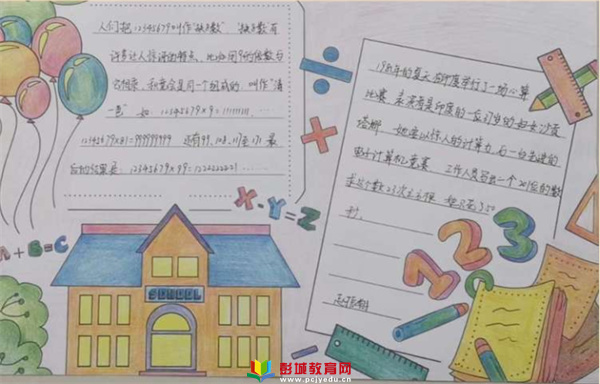 人们把12345679叫作"缺8数","缺8数"有
许多让人惊讶的特点,比如用9的倍数与
它相乘,积竟会是同一个组成的,叫作"清
一色"如 12345679×9=111111111,……
12345679×81=999999999 还有99、108、117至171最
后的结果是:12345679×99=1222222221……
X-Y=Z
A+B=C
SCHOOL
1981年的夏天,在印度举行了一场心算
比赛,表演者是印度的一位37岁的妇女,沙贡
塔娜,她要以惊人的计算力,与一台先进的
电子计算机竞赛 工作人员写出一个201位的数
求这个数23次方根 她只花了50
秒。
123
彭城教育网
www.pcjyedu.cn